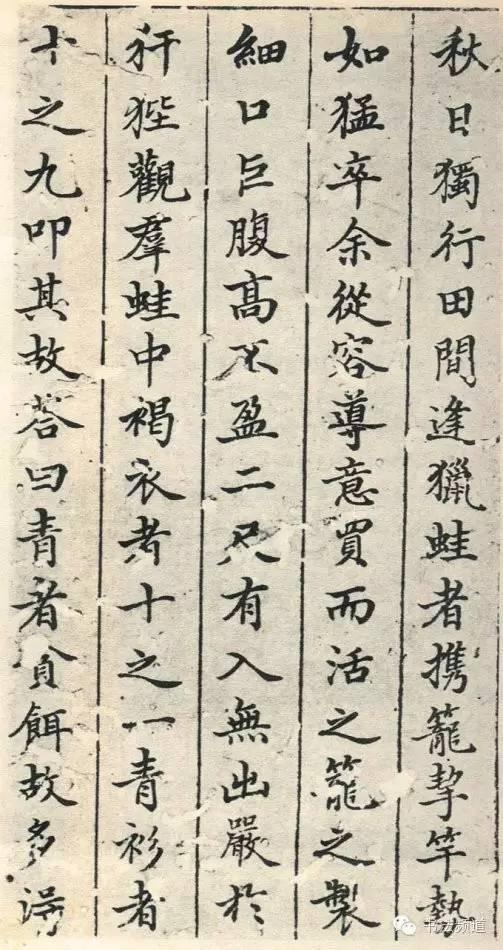 秋日獨行田間逢獵蛙者携籠挈竿勢
如猛卒余從容導意買而活之籠之製
細口巨腹高不盈二尺有入無出嚴於
犴狴觀羣蛙中褐衣者十之一青衫者
十之九叩其故荅曰青者貪餌故多得
书法频道